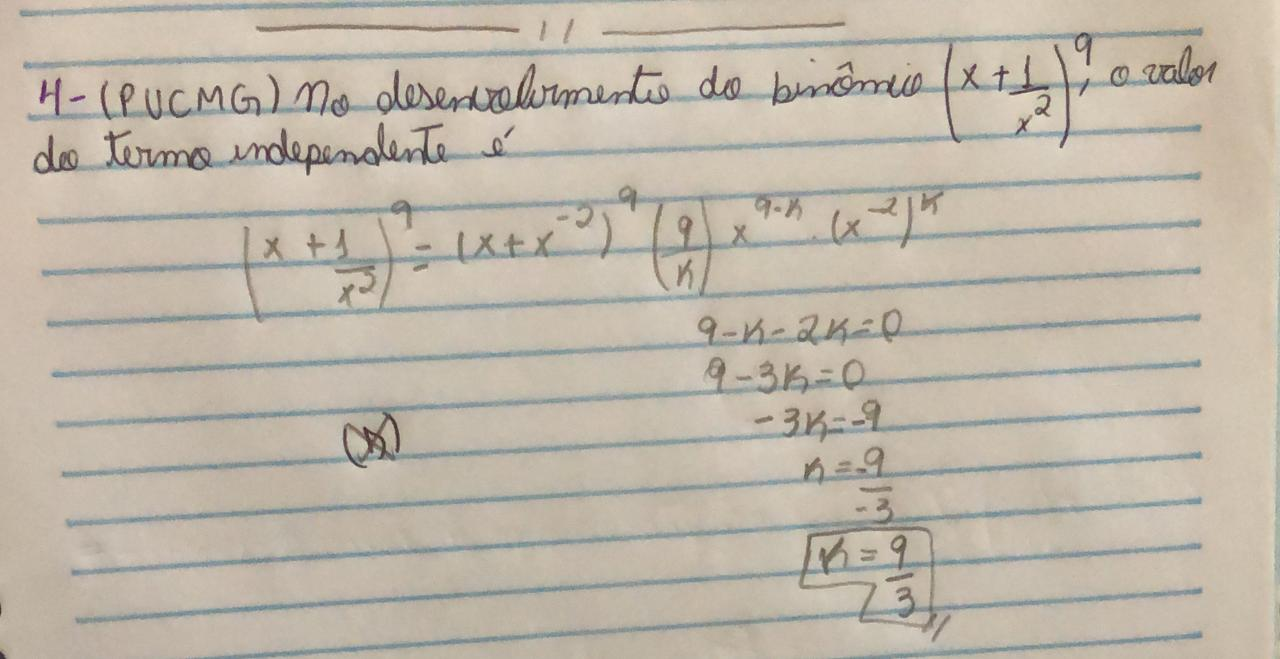 11
4-(PUCMG) No desenvolvimento do binômio (x + 1/x²)⁹, o valor
do termo independente é
(x + 1/x²)⁹ = (x + x⁻²)⁹ (9/K) x⁹⁻ᴷ · (x⁻²)ᴷ
9-K-2K=0
9-3K=0
-3K=-9
K=-9/-3
K=9/3